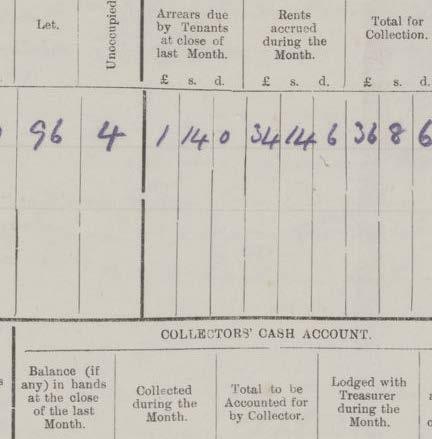 Let.
Unoccupied
Arrears due
by Tenants
at close of
last Month.
Rents
accrued
during the
Month.
Total for
Collection.
£ s. d. £ s. d. £ s. d.
96 4 1 14 0 34 14 6 36 8 6
COLLECTORS' CASH ACCOUNT.
Balance (if
any) in hands
at the close
of the last
Month.
Collected
during the
Month.
Total to be
Accounted for
by Collector.
Lodged with
Treasurer
during the
Month.